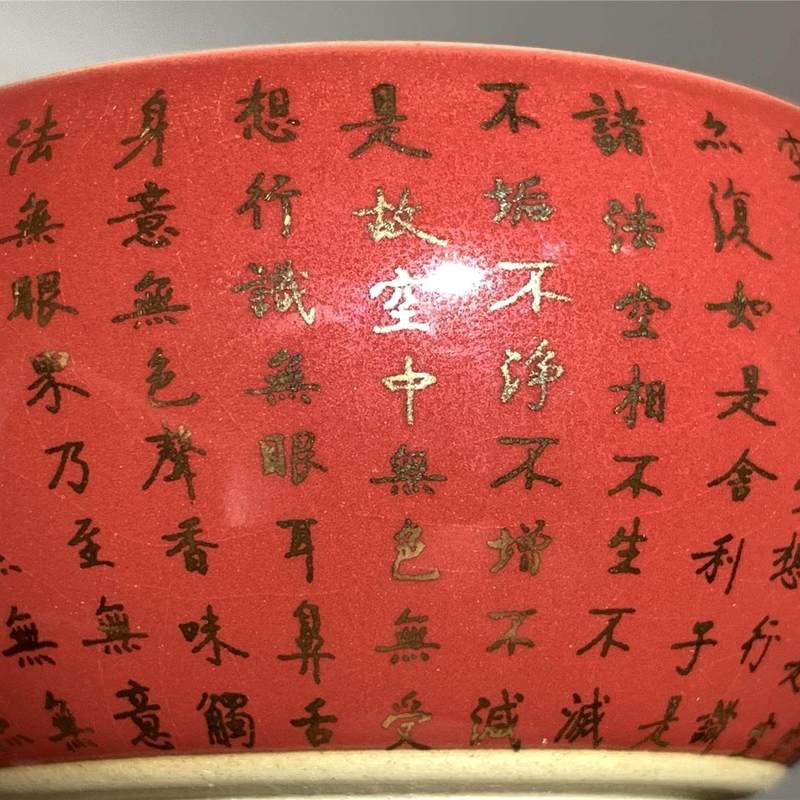 想行識
亦復如是舍利子是
諸法空相不生不滅
不垢不淨不增不減
是故空中無色無受
想行識無眼耳鼻舌
身意無色聲香味觸
法無眼界乃至無意
無無